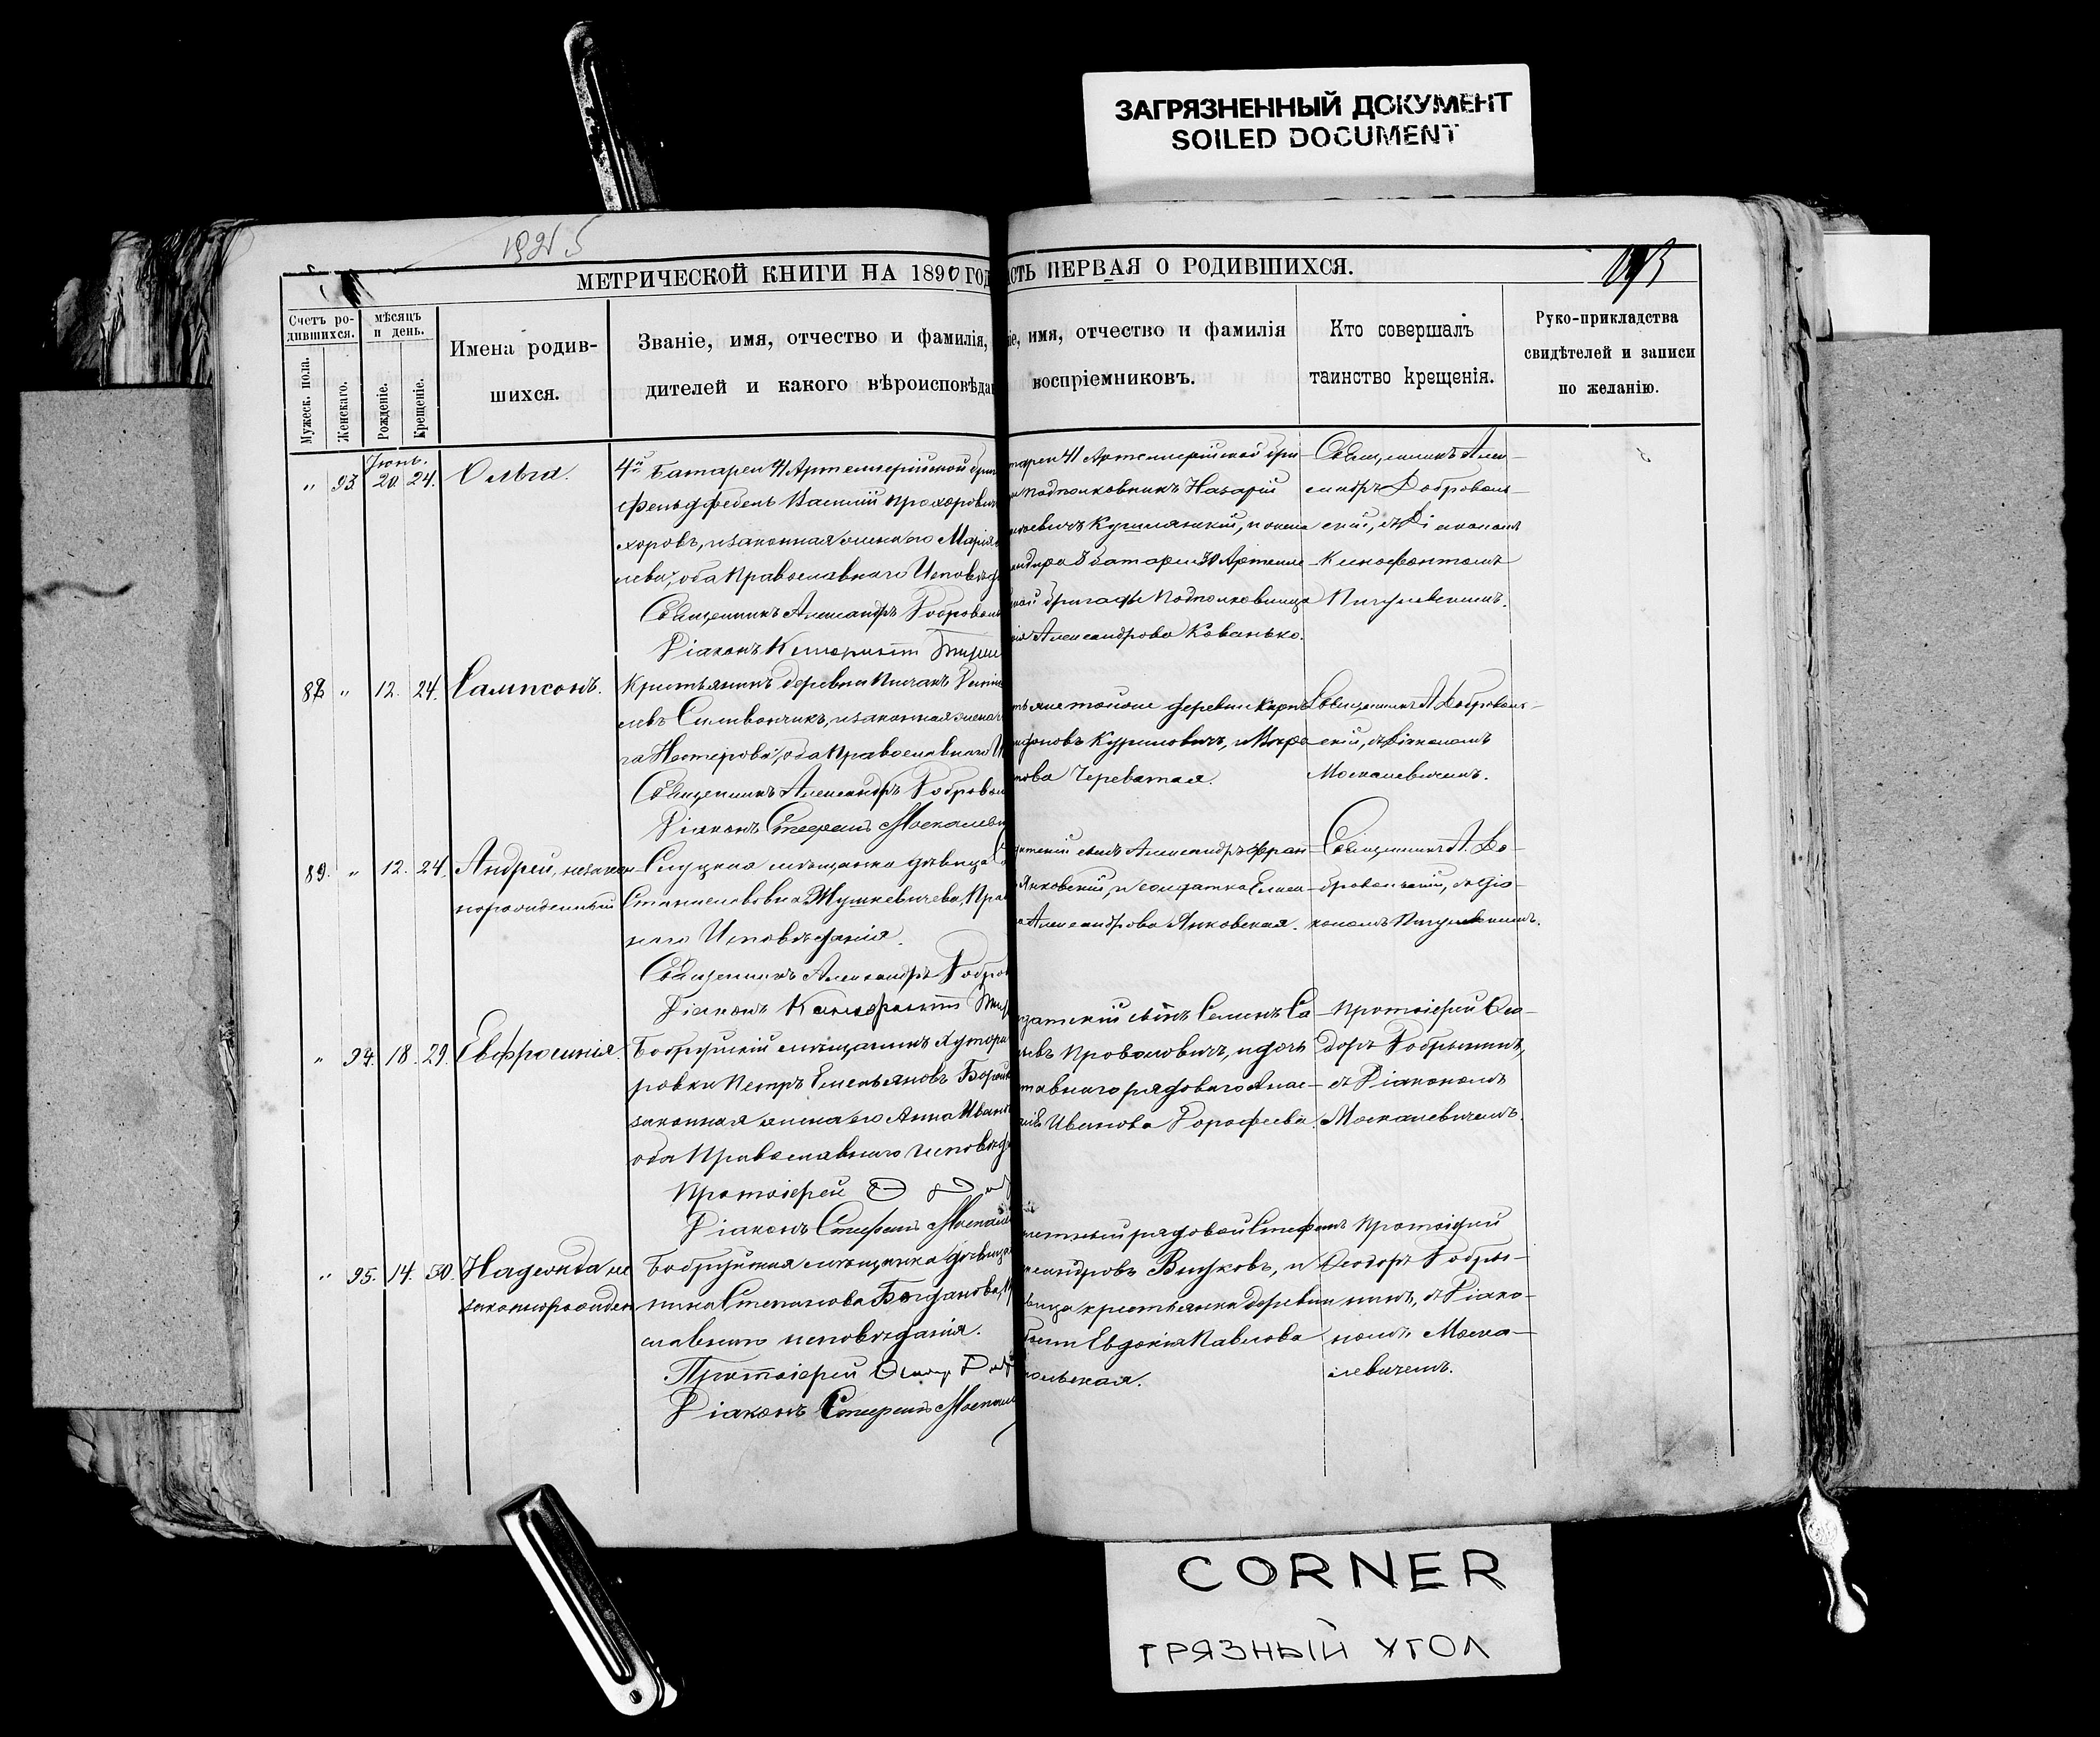 ЗАГРЯЗНЕННЫЙ ДОКУМЕНТ
SOILED DOCUMENT
МЕТРИЧЕСКОЙ КНИГИ НА 1890 ГОД
СТЬ ПЕРВАЯ О РОДИВШИХСЯ.
Счетъ ро-
дившихся.
Мужеск. пола.
Женскаго.
мѣсяцъ
и день.
Рожденіе.
Крещеніе.
Имена родив-
шихся.
Званіе, имя, отчество и фамилія,
дителей и какого вѣроисповѣда
іе, имя, отчество и фамилія
воспріемниковъ.
Кто совершалъ
таинство крещенія.
Руко-прикладства
свидѣтелей и записи
по желанію.
Іюнь.
" 93. 20. 24. Ольга.
4й Батареи 41 Артиллерійской бриг
Фельдфебель Василій Прохоровъ
хоровъ, и законная жена его Марія
лева, оба Православнаго Исповѣд
Священникъ Александръ Доброволь
Діаконъ Ксенофонтъ
тареи 41 Артиллерійской бри-
Подполковникъ Назарій
евичъ, и жена
андира 8 батареи 30 Артилле-
ской бригады Подполковница
Александрова Кованько.
Священникъ Алек-
сандръ Доброволь-
скій, съ Діакономъ
Ксенофонтомъ
Пигулевскимъ.
88 " 12. 24. Сампсонъ.
Крестьянинъ деревни
левъ, и законная жена
га Нестерова, оба Православнаго И
Священникъ Александръ Доброволь
Діаконъ Стефанъ Москалеви
тьяне тойже деревни Карпъ
Куриловичъ, и
нова Череватая.
Священникъ А Доброволь-
скій, съ Діакономъ
Москалевичемъ.
89. " 12. 24. Андрей, незакон-
норожденный
Слуцкая мѣщанка дѣвица
Станиславовна Жушкевичева, Прав
наго Исповѣданія.
Священникъ Александръ Добров
Діаконъ Ксенофонтъ
датскій сынъ Александръ Фран-
Янковскій, и солдатка Елен-
а Александрова Янковская.
Священникъ А. До-
бровольскій, съ Діа-
кономъ Пигулевскимъ.
" 94. 18. 29. Евфросинія.
Бобруйскій мѣщанинъ хутора
ровки Петръ Емельяновъ
законная жена его Анна Иван
оба Православнаго исповѣд
Протоіерей
Діаконъ Стефанъ Москале
датскій сынъ Семенъ Са-
евъ, и дочь
тавнаго рядоваго Анас-
Иванова Дорофеева.
Протоіерей Ѳео-
доръ Добрынинъ,
съ Діакономъ
Москалевичемъ.
" 95. 14. 30. Надежда не
законнорожден
Бобруйская мѣщанка дѣвица
Степанова Богданова, П
славнаго исповѣданія.
Протоіерей
Діаконъ Стефанъ Москале
рядовой Стефанъ
сандровъ, и
вица крестьянка деревни
Евдокія Павлова
польская.
Протоіерей
Ѳеодоръ Добры-
нинъ, съ Діако-
номъ Моска-
левичемъ.
CORNER
ГРЯЗНЫЙ УГОЛ